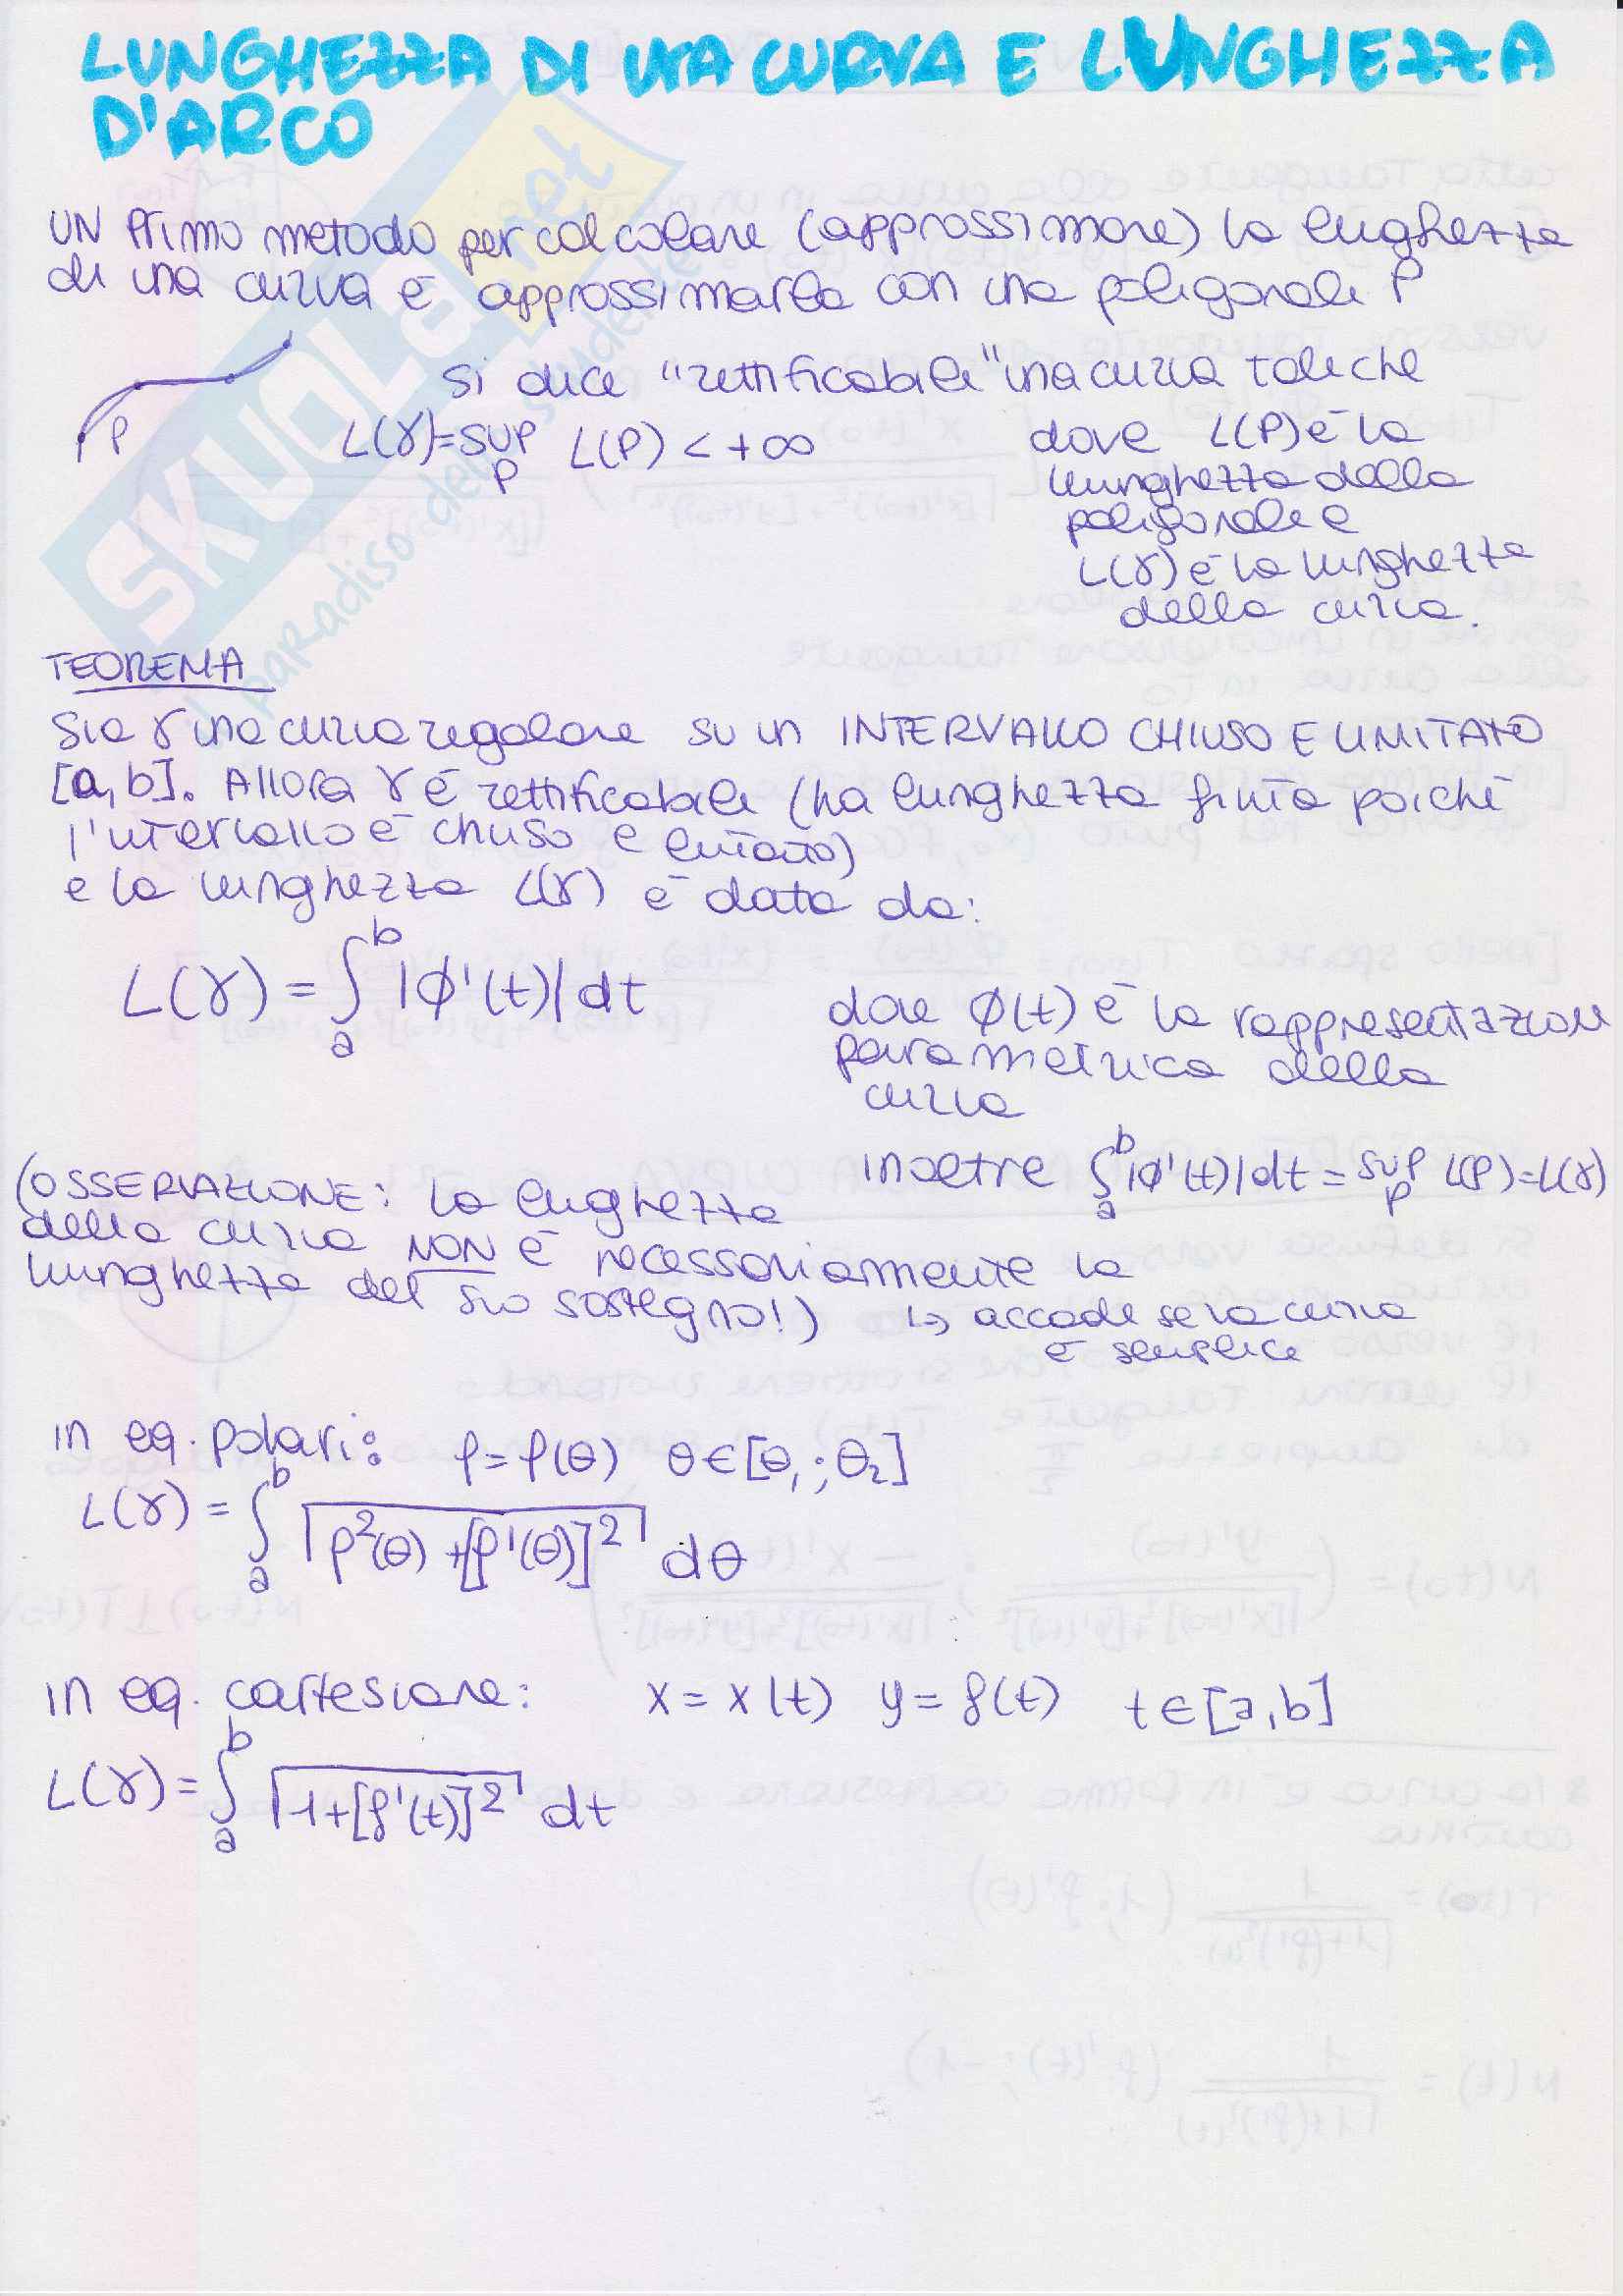 LUNGHEZZA DI UNA CURVA E LUNGHEZZA
D'ARCO
UN Primo metodo per calcolare (approssimare) la lughezza
di una curva è approssimarla con una poligonale P
si dice "rettificabile" una curva tale che
P
L(γ)=sup L(P) < +∞
P
dove L(P) è la
lunghezza della
poligonale e
L(γ) è la lunghezza
della curva.
TEOREMA
Sia γ una curva regolare su un INTERVALLO CHIUSO E LIMITATO
[a,b]. Allora γ è rettificabile (ha lunghezza finita poichè
l'intervallo è chiuso e limitato)
e la lunghezza L(γ) è data da:
L(γ) = ∫ₐᵇ |φ'(t)| dt
dove φ(t) è la rappresentazione
parametrica della
curva
inoltre ∫ₐᵇ |φ'(t)| dt = sup L(P)=L(γ)
P
(OSSERVAZIONE: la lughezza
della curva NON è necessariamente la
lunghezza del suo sostegno!) ↳ accade se la curva
è semplice
in eq. polari: ρ=ρ(θ) θ∈[θ₁;θ₂]
L(γ) = ∫ₐᵇ √(ρ²(θ) + [ρ'(θ)]²) dθ
in eq. cartesiane: x = x(t) y = f(t) t∈[a,b]
L(γ) = ∫ₐᵇ √(1+[f'(t)]²) dt
SKUOLA.net
paradiso dello studente